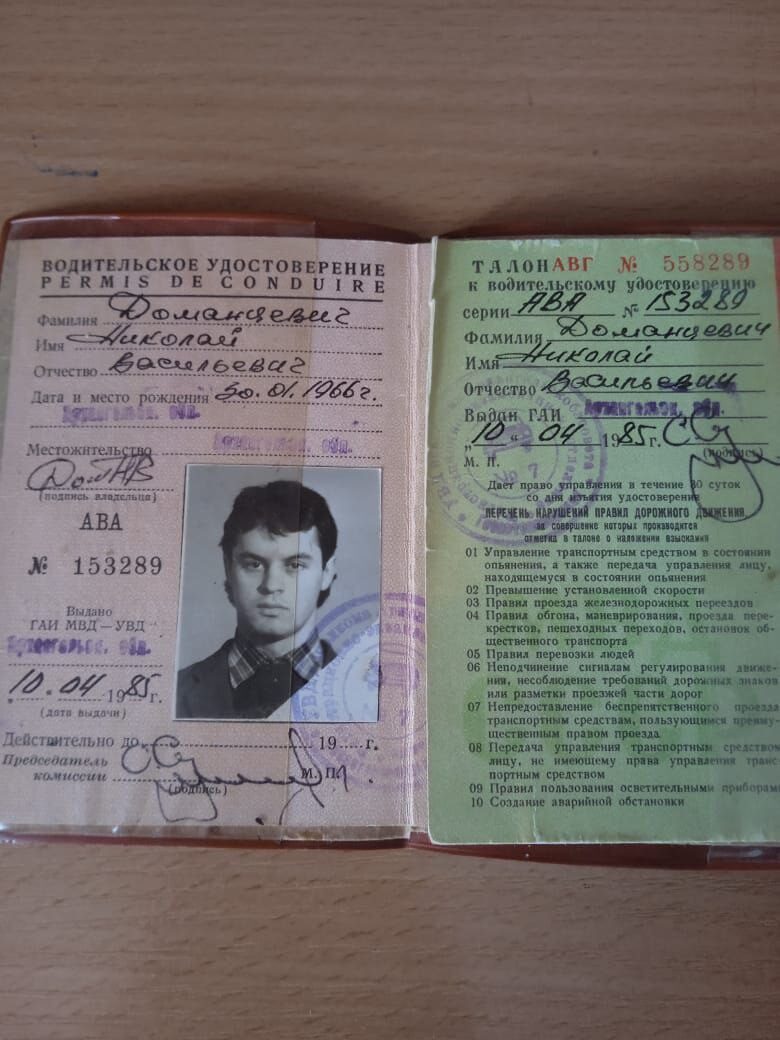 ВОДИТЕЛЬСКОЕ УДОСТОВЕРЕНИЕ
PERMIS DE CONDUIRE
Фамилия Доманцевич
Имя Николай
Отчество Васильевич
Дата и место рождения 30.01.1966г.
Архангельск. обл.
Архангельск. обл.
Местожительство
(подпись владельца)
АВА
№ 153289
Выдано
ГАИ МВД—УВД
Архангельск. обл.
10. 04 1985 г.
(дата выдачи)
Действительно до 19 г.
Председатель
комиссии
М. П.
(подпись)
ТАЛОН АВГ № 558289
к водительскому удостоверению
серии АВА № 153289
Фамилия Доманцевич
Имя Николай
Отчество Васильевич
Выдан ГАИ Архангельск. обл.
„10“ 04 1985 г.
(подпись)
М. П.
Дает право управления в течение 30 суток
со дня изъятия удостоверения
ПЕРЕЧЕНЬ НАРУШЕНИЙ ПРАВИЛ ДОРОЖНОГО ДВИЖЕНИЯ,
за совершение которых производится
отметка в талоне о наложении взыскания
01 Управление транспортным средством в состоянии
опьянения, а также передача управления лицу,
находящемуся в состоянии опьянения
02 Превышение установленной скорости
03 Правил проезда железнодорожных переездов
04 Правил обгона, маневрирования, проезда пере-
крестков, пешеходных переходов, остановок об-
щественного транспорта
05 Правил перевозки людей
06 Неподчинение сигналам регулирования движе-
ния, несоблюдение требований дорожных знаков
или разметки проезжей части дорог
07 Непредоставление беспрепятственного проезда
транспортным средствам, пользующимся преиму-
щественным правом проезда
08 Передача управления транспортным средством
лицу, не имеющему права управления транс-
портным средством
09 Правил пользования осветительными приборами
10 Создание аварийной обстановки